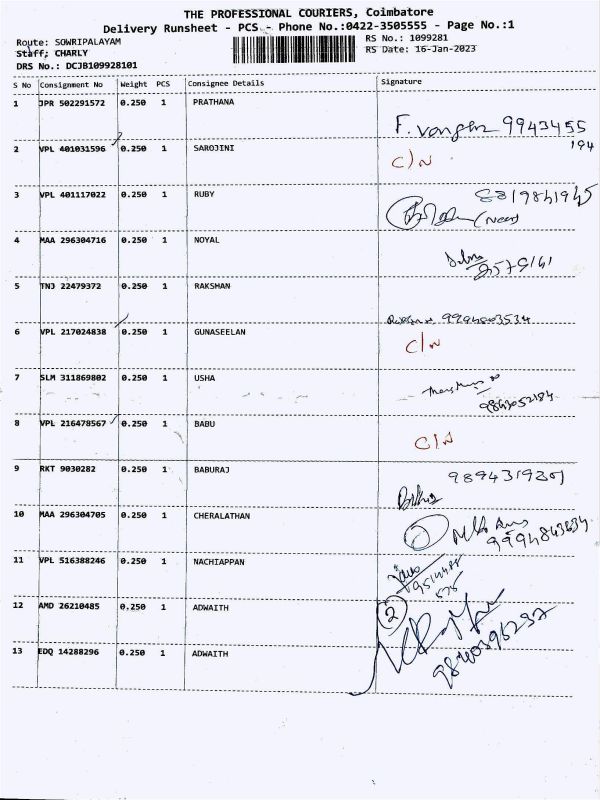 THE PROFESSIONAL COURIERS, Coimbatore
Delivery Runsheet - PCS - Phone No.:0422-3505555 - Page No.:1
Route: SOWRIPALAYAM
RS No.: 1099281
Staff: CHARLY
RS Date: 16-Jan-2023
DRS No.: DCJB109928101
S No Consignment No Weight PCS Consignee Details Signature
1 JPR 502291572 0.250 1 PRATHANA
9943455
194
2 VPL 401031596 0.250 1 SAROJINI C/N
3 VPL 401117022 0.250 1 RUBY
4 MAA 296304716 0.250 1 NOYAL
5 TNJ 22479372 0.250 1 RAKSHAN
6 VPL 217024838 0.250 1 GUNASEELAN C/N
7 SLM 311869802 0.250 1 USHA
8 VPL 216478567 0.250 1 BABU C/N
9 RKT 9030282 0.250 1 BABURAJ
10 MAA 296304705 0.250 1 CHERALATHAN
11 VPL 516388246 0.250 1 NACHIAPPAN
12 AMD 26210485 0.250 1 ADWAITH 2
13 EDQ 14288296 0.250 1 ADWAITH